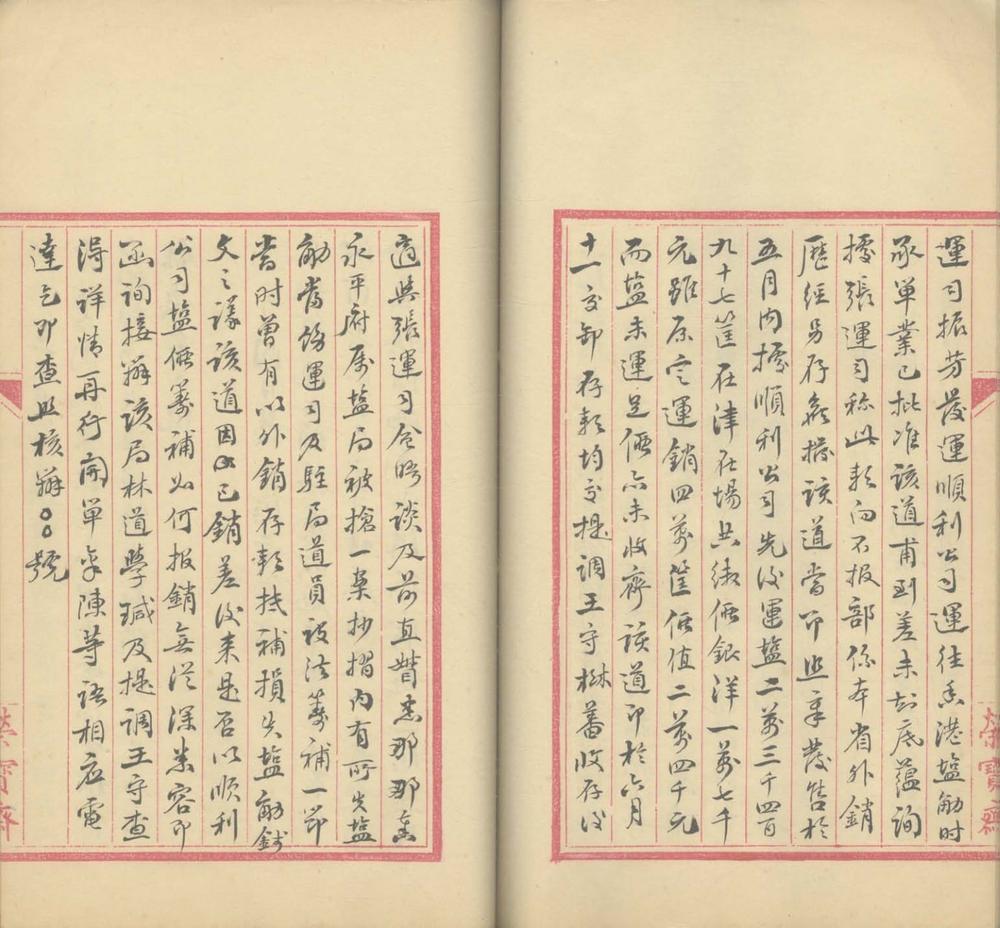 運司振芳發運順利公司運往香港塩觔時
承單業已批准該道甫到差未知底蘊詢
據張運司称此欵向不报部係本省外銷
歷經另存彙撥該道當即照章發售於
五月内據順利公司先後運塩二萬三千四百
九十七筐在津在場共缴價銀洋一萬七千
元雖原定運銷四萬筐價值二萬四千元
而塩未運足價亦未收齊該道即於六月
十一交卸存欵均交提調王守楙蕃收存後
適與張運司會晤談及前直督那
永平府属塩局被搶一案抄摺内有所失塩
觔當飭運司及駐局道員設法籌補一節
當时曾有以外銷存欵抵補損失塩觔錢
文之議該道因已銷差後来是否以順利
公司塩價籌補如何报銷無從深悉容即
函詢接辦該局林道學瑊及提調王守查
得详情再行開單呈陳等语相应電
達乞即查照核辦○○號
榮寳齋
榮寳齋